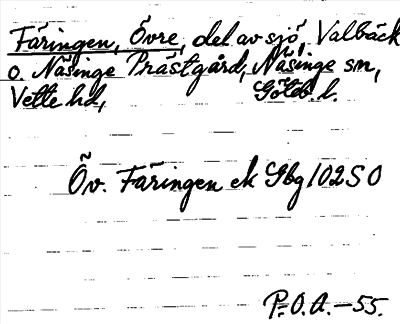 Färingen, Övre, del av sjö Valbäck
o. Näsinge Prästgård, Näsinge sn,
Vette hd, Göteb. l.
Öv. Färingen ek Gbg 102 SO
P.O.A.—55.